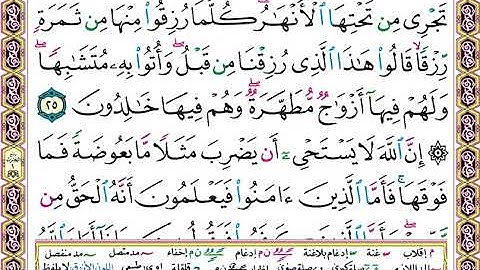 تَجْرِى مِن تَحْتِهَا ٱلْأَنْهَٰرُ ۖ كُلَّمَا رُزِقُوا۟ مِنْهَا مِن ثَمَرَةٍ
رِّزْقًا ۙ قَالُوا۟ هَٰذَا ٱلَّذِى رُزِقْنَا مِن قَبْلُ ۖ وَأُتُوا۟ بِهِۦ مُتَشَٰبِهًا ۖ
وَلَهُمْ فِيهَآ أَزْوَٰجٌ مُّطَهَّرَةٌ ۖ وَهُمْ فِيهَا خَٰلِدُونَ ٢٥
۞ إِنَّ ٱللَّهَ لَا يَسْتَحْىِۦٓ أَن يَضْرِبَ مَثَلًا مَّا بَعُوضَةً فَمَا
فَوْقَهَا ۚ فَأَمَّا ٱلَّذِينَ ءَامَنُوا۟ فَيَعْلَمُونَ أَنَّهُ ٱلْحَقُّ مِن
م إقلاب غنة إدغام بلاغنة ن م إدغام ن م إخفاء مد متصل مد منفصل